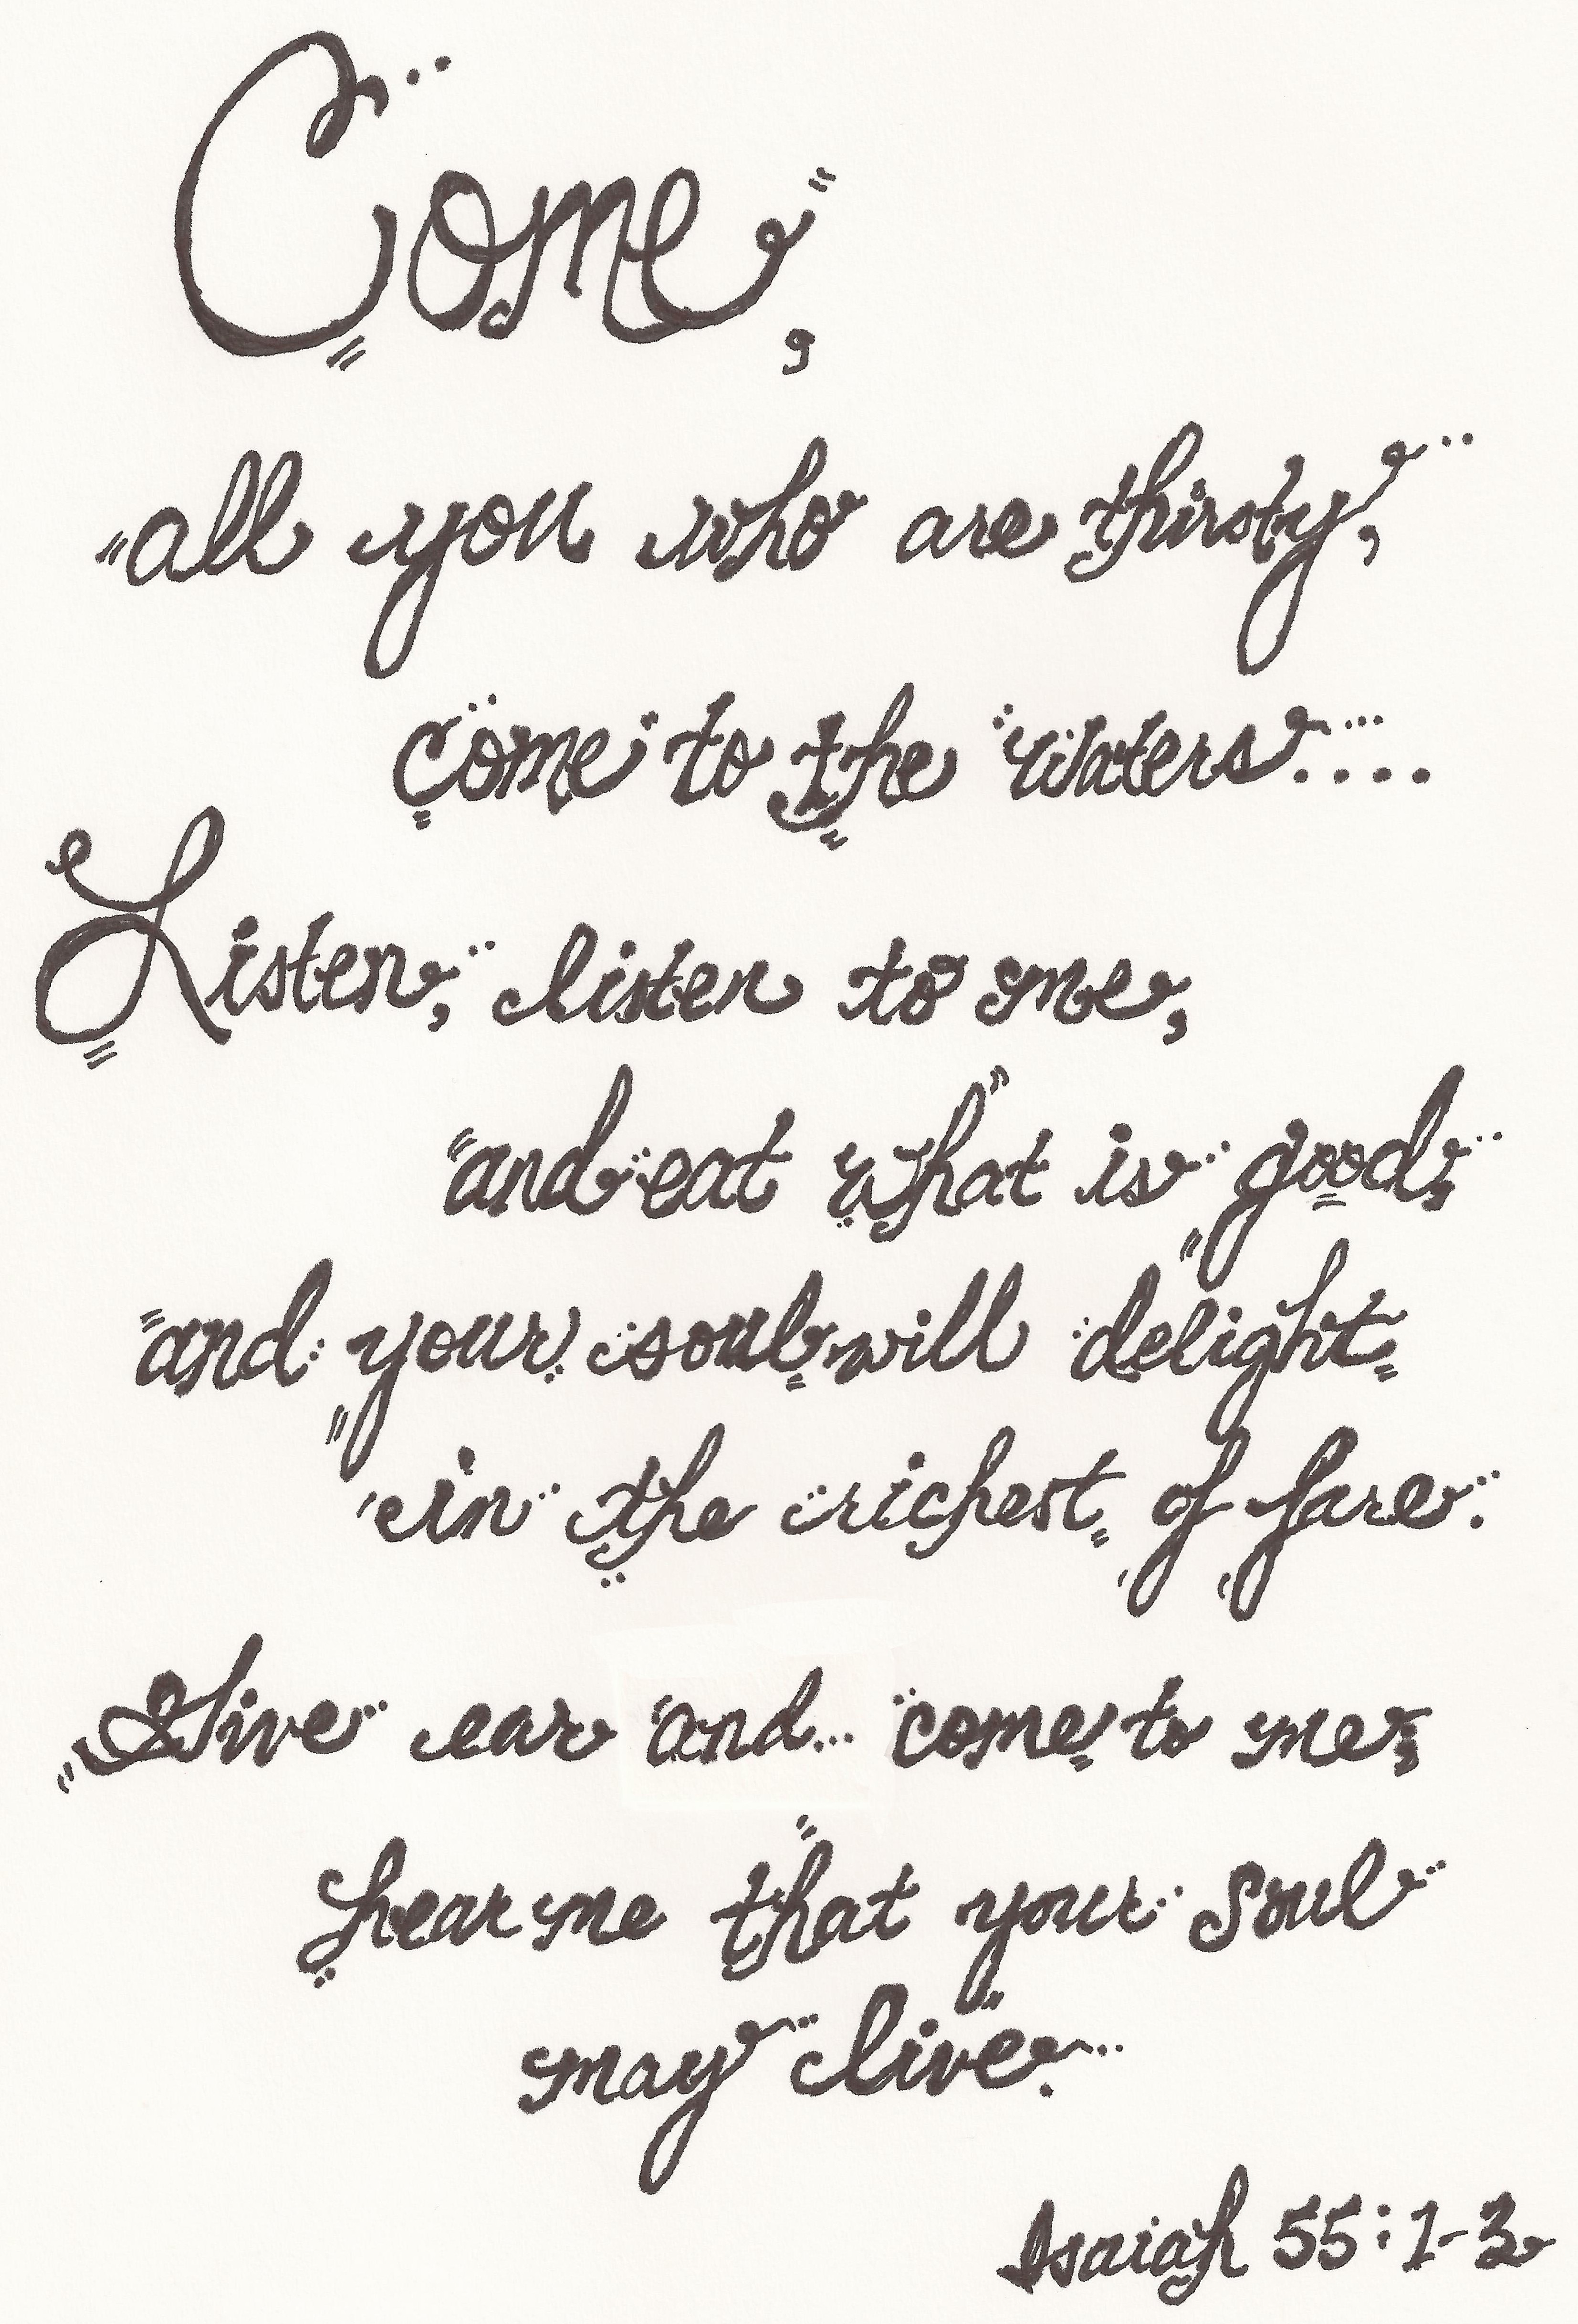 Come,
all you who are thirsty,
come to the waters....
Listen, listen to me,
and eat what is good,
and your soul will delight
in the richest of fare.
Give ear and come to me;
hear me that your soul
may live.
Isaiah 55:1-3